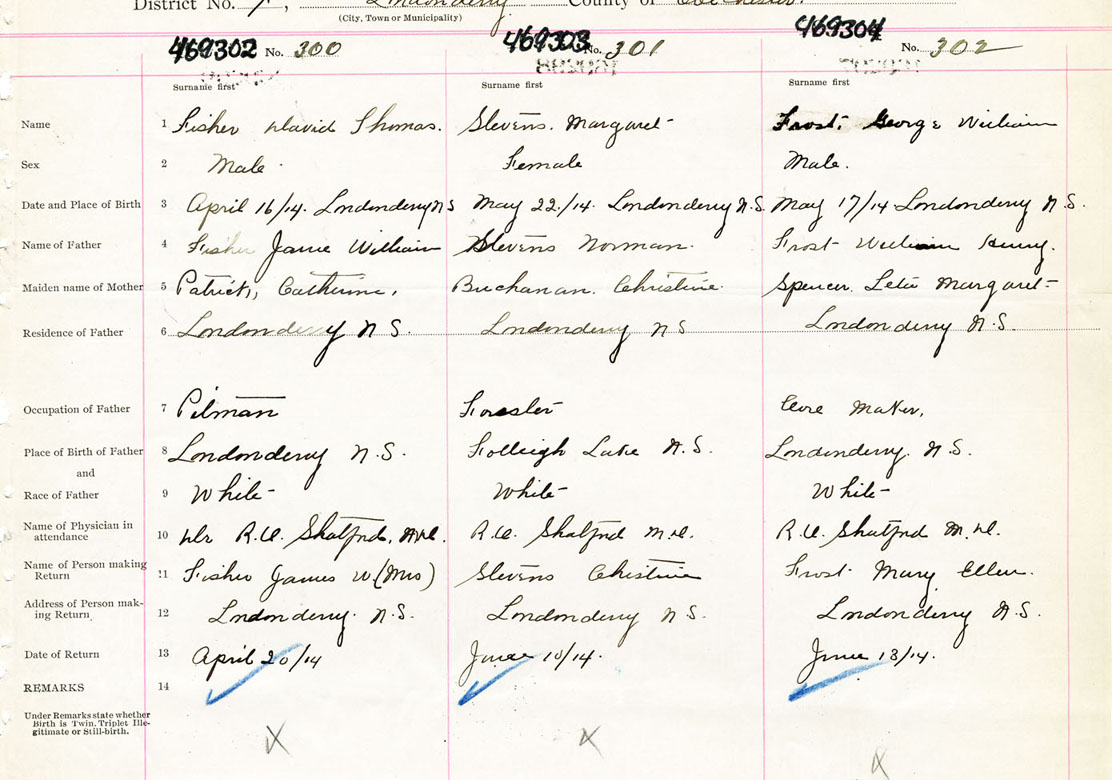 District No. 7, Londonderry County of Colchester.
(City, Town or Municipality)
469302 No. 300 469303 No. 301 469304 No. 302
Surname first Surname first Surname first
Name 1 Fisher David Thomas. Stevens. Margaret Frost, George William
Sex 2 Male Female Male.
Date and Place of Birth 3 April 16/14. Londonderry N S May 22/14. Londonderry N.S. May 17/14 Londonderry N.S.
Name of Father 4 Fisher William Stevens Norman. Frost William Henry.
Maiden name of Mother 5 Patrick, Catherine, Buchanan. Christine Spencer. Margaret
Residence of Father 6 Londonderry N S. Londonderry N S Londonderry N.S.
Occupation of Father 7 Forester Maker,
Place of Birth of Father 8 Londonderry N.S. Folleigh Lake N.S. Londonderry. N.S.
and
Race of Father 9 White White White
Name of Physician in
attendance 10 Dr Shatford, M.D. Shatford M.D. Shatford M.D.
Name of Person making
Return 11 Fisher James W (Mrs) Stevens Christine Frost Mary Ellen.
Address of Person mak-
ing Return 12 Londonderry. N.S. Londonderry N.S. Londonderry N.S.
Date of Return 13 April 20/14 June 10/14. June 13/14.
REMARKS 14
Under Remarks state whether
Birth is Twin, Triplet Ille-
gitimate or Still-birth.
X X X